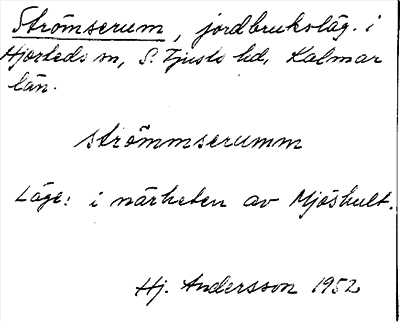 Strömserum, jordbruksläg. i
Hjorteds sn, S. Tjusts hd, Kalmar
län.
strömmserumm
Läge: i närheten av Mjöshult.
Hj. Andersson 1952